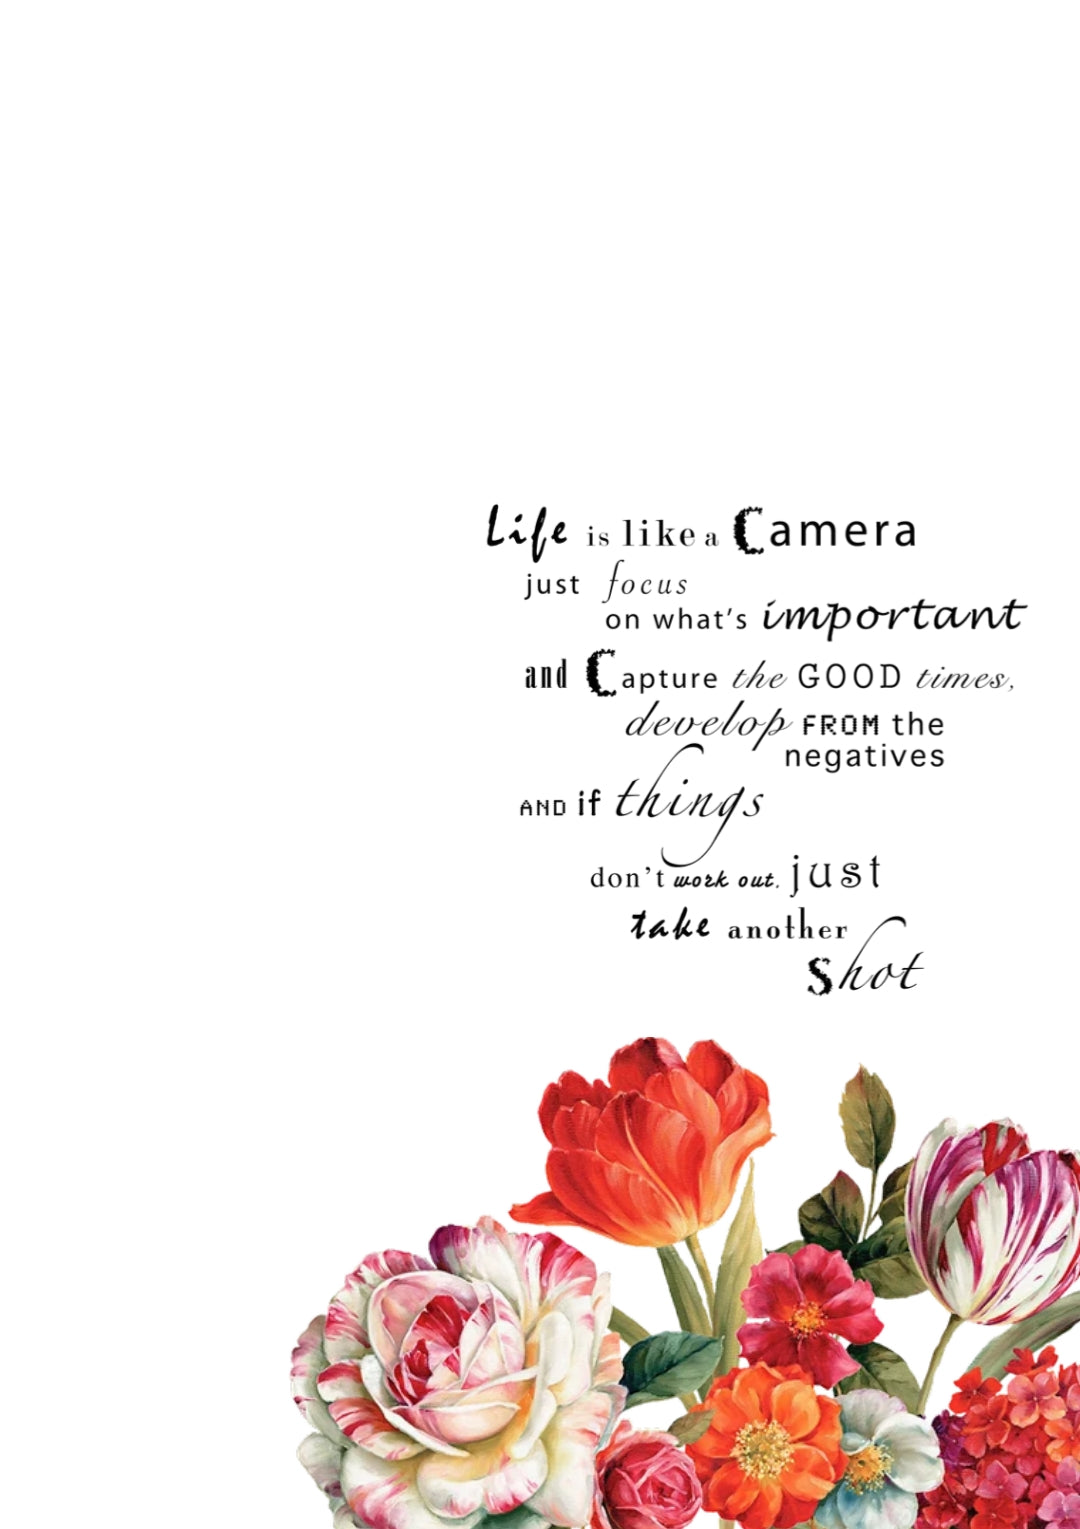 Life is like a Camera
just focus
on what's important
and Capture the GOOD times,
develop FROM the
negatives
AND if things
don't work out, just
take another
shot